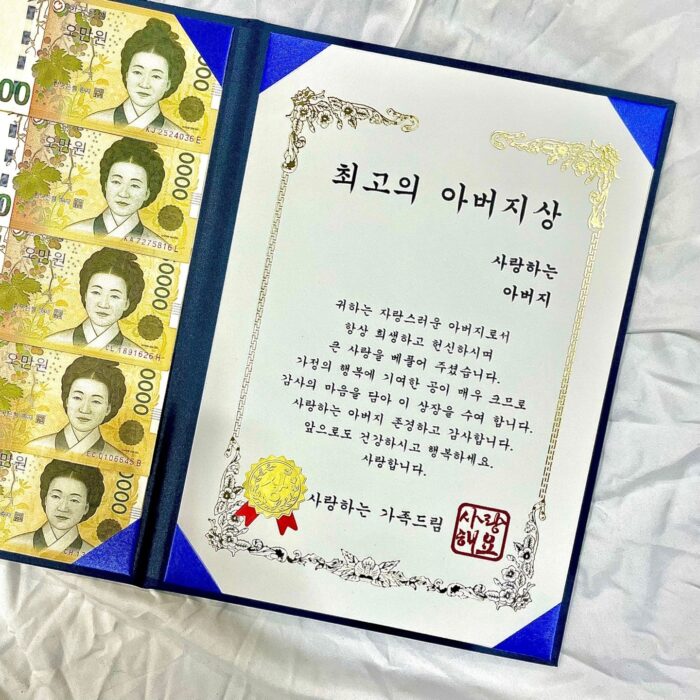 한국은행
오만원
0000
KJ 2524036 E
00
오만원
0000
KA 7275816 L
0
오만원
0000
1891626 H
오만원
0000
EC 0106645 B
오만원
0000
최고의 아버지상
사랑하는
아버지
귀하는 자랑스러운 아버지로서
항상 희생하고 헌신하시며
큰 사랑을 베풀어 주셨습니다.
가정의 행복에 기여한 공이 매우 크므로
감사의 마음을 담아 이 상장을 수여 합니다.
사랑하는 아버지 존경하고 감사합니다.
앞으로도 건강하시고 행복하세요.
사랑합니다.
상
사랑하는 가족드림
사랑
해요